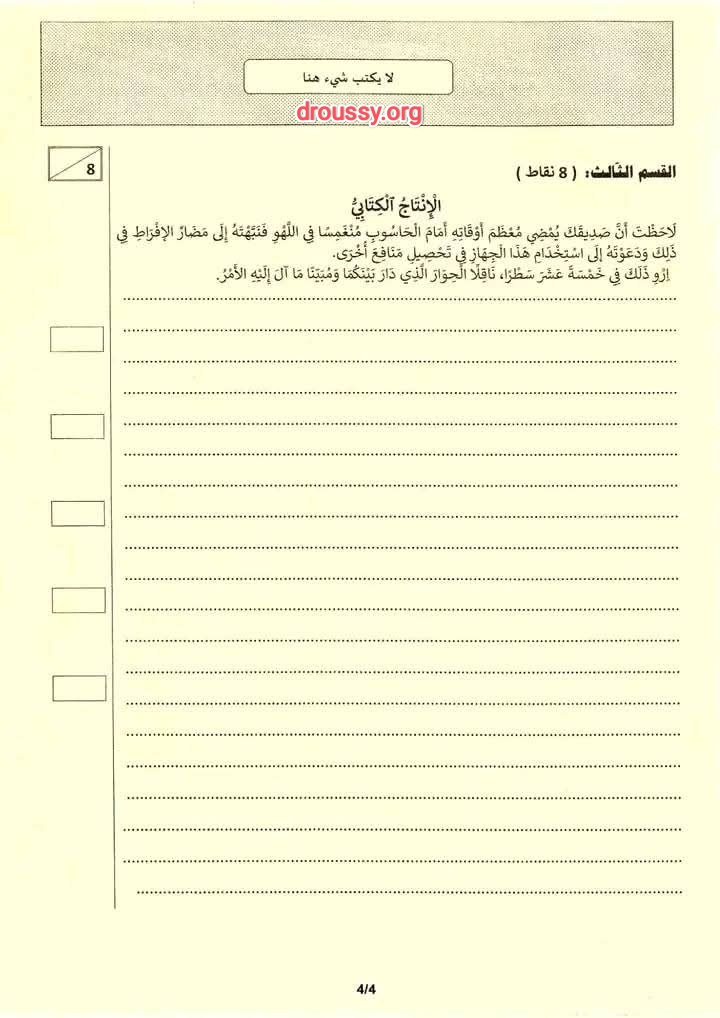 لا يكتب شيء هنا
droussy.org
القسم الثّالث: ( 8 نقاط )
8
الْإِنْتَاجُ ٱلْكِتَابِيُّ
لَاحَظْتَ أَنَّ صَدِيقَكَ يُمْضِي مُعْظَمَ أَوْقَاتِهِ أَمَامَ الْحَاسُوبِ مُنْغَمِسًا فِي اللَّهْوِ فَنَبَّهْتَهُ إِلَى مَضَارِّ الإِفْرَاطِ فِي
ذَلِكَ وَدَعَوْتَهُ إِلَى اسْتِخْدَامِ هَذَا الْجِهَازِ فِي تَحْصِيلِ مَنَافِعَ أُخْرَى.
اِرْوِ ذَلِكَ فِي خَمْسَةَ عَشَرَ سَطْرًا، نَاقِلًا الْحِوَارَ الَّذِي دَارَ بَيْنَكُمَا وَمُبَيِّنًا مَا آلَ إِلَيْهِ الأَمْرُ.
4/4